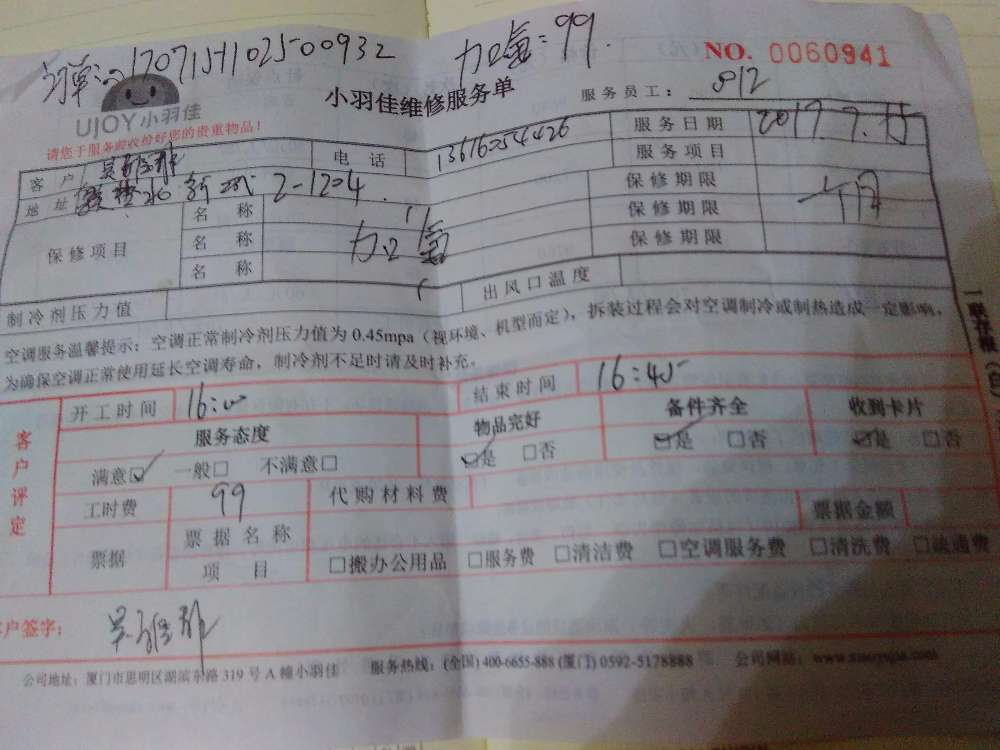 订单:170715411025-00932
加氟:99.
NO. 0060941
UJOY小羽佳
小羽佳维修服务单
服务员工: 912
请您于服务前收纷好您的贵重物品!
客 户
电 话 13616054426
服务日期 2017.7.15
地 址 2-1204
服务项目
保修项目
名 称
名 称 加氟
名 称
保修期限
保修期限
保修期限
制冷剂压力值
出风口温度
空调服务温馨提示: 空调正常制冷剂压力值为 0.45mpa (视环境、机型而定), 拆装过程会对空调制冷或制热造成一定影响,
为确保空调正常使用延长空调寿命, 制冷剂不足时请及时补充。
一联存根
客户评定
开工时间 16:00
结束时间 16:45
服务态度
物品完好
备件齐全
收到卡片
满意☑ 一般□ 不满意□
☑是 □否
☑是 □否
☑是 □否
工时费 99
代购材料费
票据
票据名称
票据金额
项 目
□搬办公用品 □服务费 □清洁费 □空调服务费 □清洗费 □疏通费
客户签字:
公司地址: 厦门市思明区湖滨东路 319 号 A 幢小羽佳 服务热线: (全国) 400-6655-888 (厦门) 0592-5178888 公司网站: www.xiaoyujia.com